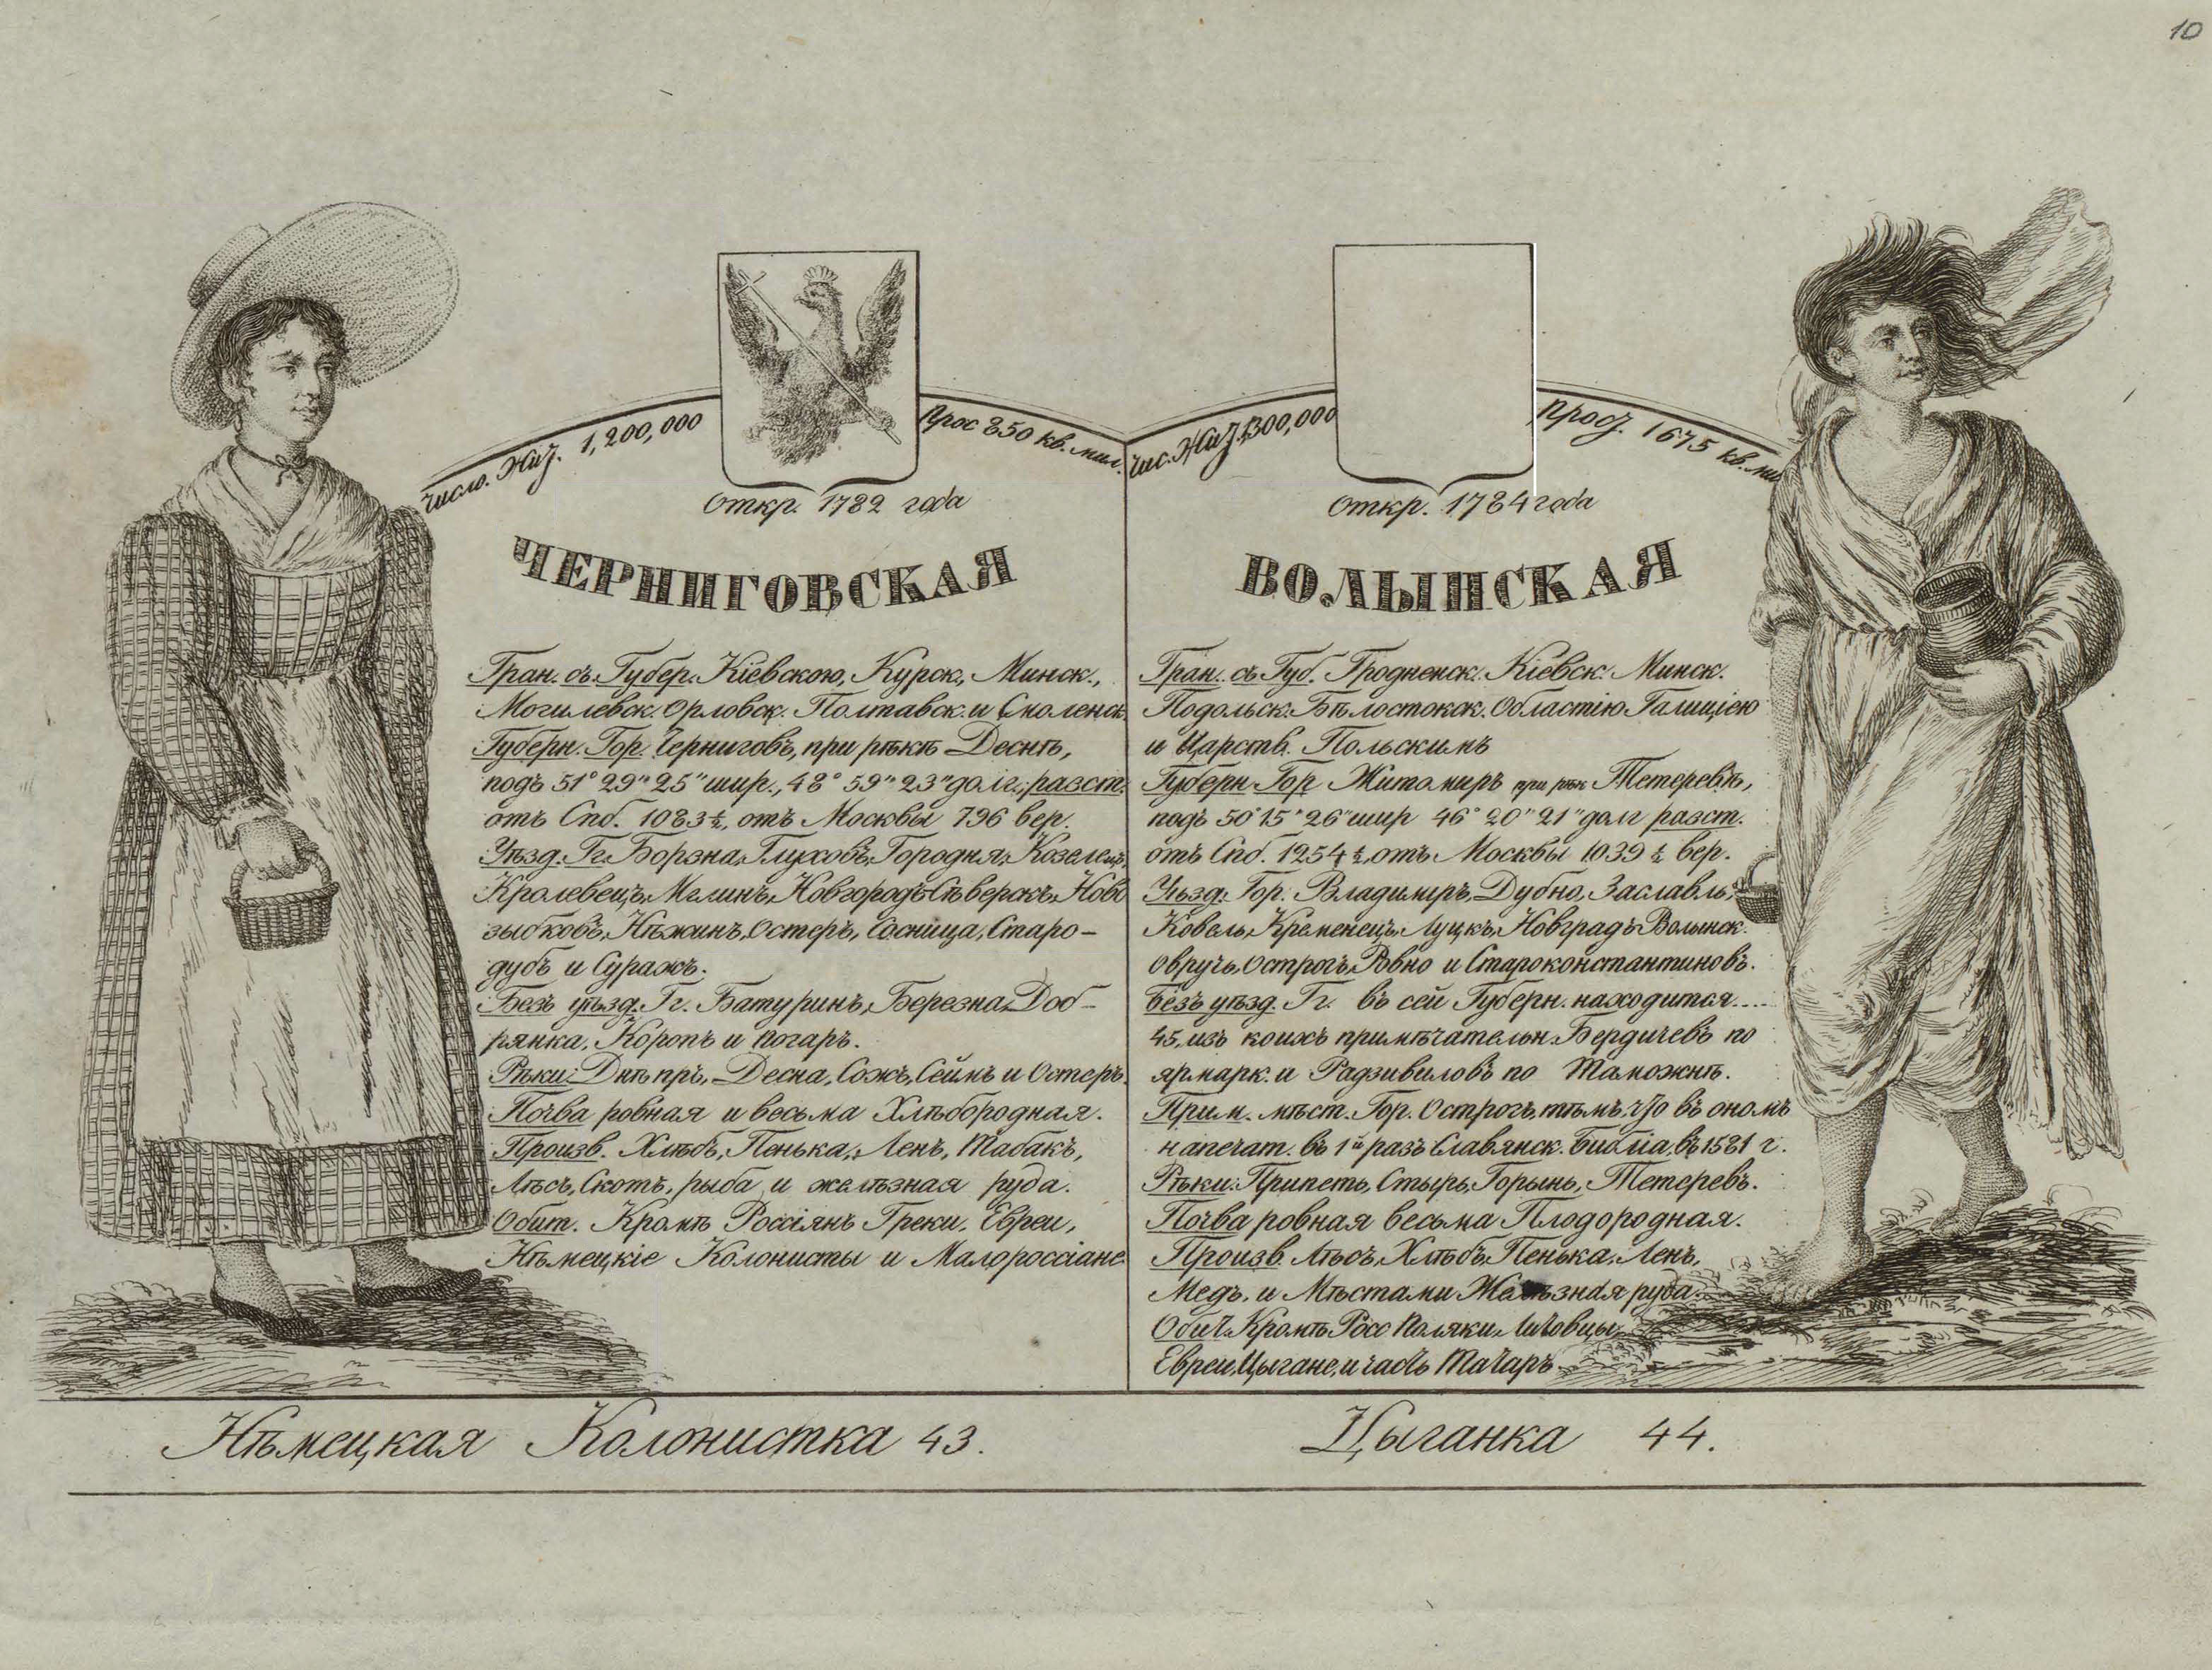 10
число. Жит. 1,200,000
Прос 850 кв. мил.
Откр. 1782 года
ЧЕРНИГОВСКАЯ
Гран. съ. Губер. Кіевскою, Курск., Минск.,
Могилевск. Орловск. Полтавск. и Смоленск
Губерн. Гор. Черниговъ, при рѣкѣ Деснѣ,
подъ 51° 29" 25" шир., 48° 59" 23" долг.; разст.
отъ Спб. 1083 ½, отъ Москвы 796 вер.
Уѣзд. Гг. Борзна, Глуховъ, Городня, Козелец,
Кролевецъ, Мглинъ, Новгородъ Сѣверскъ, Ново
зыбковъ, Нѣжинъ, Остеръ, Сосница, Старо-
дубъ и Суражъ.
Безъ уѣзд. Гг. Батуринъ, Березна, Доб-
рянка, Коропъ и Погаръ.
Рѣки: Днѣпръ, Десна, Сожъ, Сеймъ и Остеръ.
Почва ровная и весьма Хлѣбородная.
Произв. Хлѣбъ, Пенька, Ленъ, Табакъ,
Лѣсъ, Скотъ, рыба и желѣзная руда.
Обит. Кромѣ Россіянъ Греки. Евреи,
Нѣмецкіе Колонисты и Малороссіане
Нѣмецкая Колонистка 43.
Чис. Жит. 1300,000
Прост. 1675 кв. ми
Откр. 1784 года
ВОЛЫНСКАЯ
Гран. съ Губ. Гродненск. Кіевск. Минск.
Подольск. Бѣлостокск. Областію Галиціею
и Царств. Польскимъ
Губерн. Гор Житомиръ при рѣк Тетеревѣ,
подъ 50° 15" 26" шир 46° 20" 21" долг разст.
отъ Спб. 1254 ½, отъ Москвы 1039 ½ вер.
Уѣзд. Гор. Владимиръ, Дубно, Заславль,
Ковель, Кременецъ, Луцкъ, Новградъ Волынск.
Овручь, Острогъ, Ровно и Староконстантиновъ.
Безъ уѣзд. Гг. въ сей Губерн. находится....
45, изъ коихъ примѣчательн. Бердичевъ по
ярмарк. и Радзивиловъ по Таможнѣ.
Прим. мѣст. Гор. Острогъ, тѣмъ, что въ ономъ
напечат. въ 1й разъ Славянск. Библіа, въ 1581 г.
Рѣки: Припеть, Стырь, Горынь, Тетеревъ.
Почва ровная весьма Плодородная.
Произв. Лѣсъ, Хлѣбъ, Пенька, Ленъ,
Медъ, и Мѣстами Желѣзная руда.
Обит. Кромѣ Росс Поляки, Литовцы,
Евреи, Цыгане, и часть Татаръ
Цыганка 44.